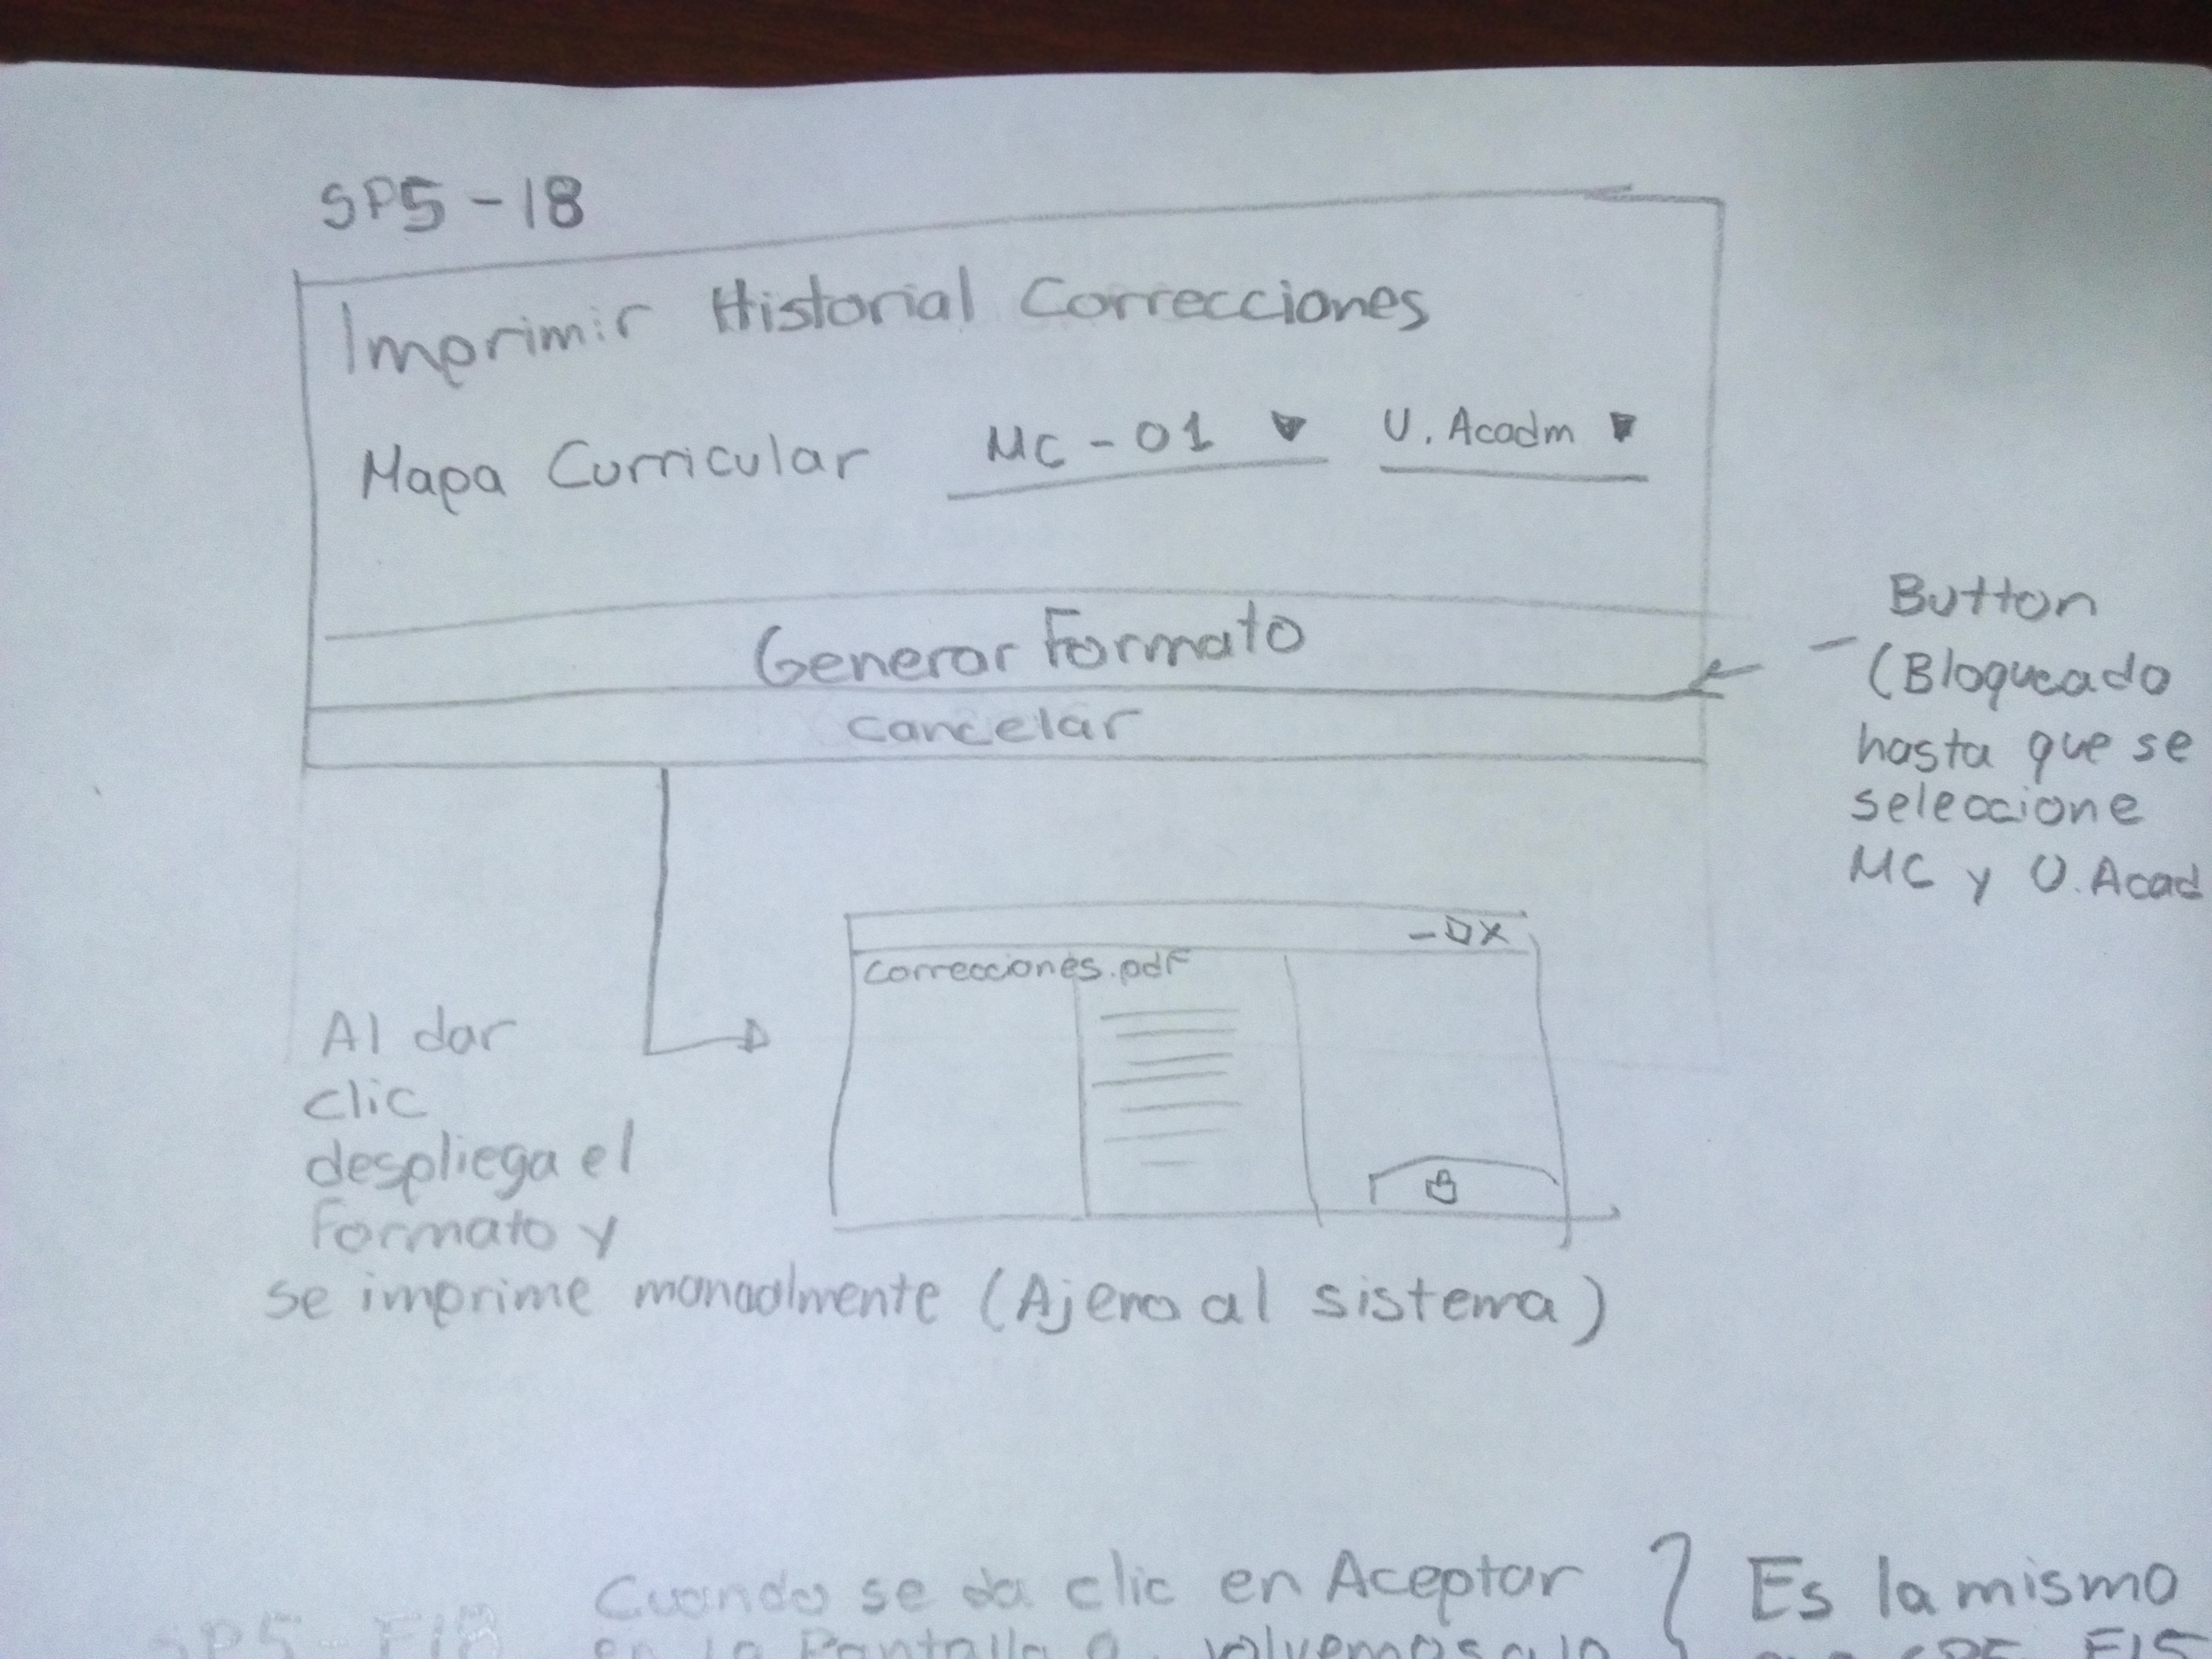 SP5-18
Imprimir Historial Correcciones
Mapa Curricular MC-01 U. Acadm
Generar Formato
cancelar
Button
(Bloqueado
hasta que se
seleccione
MC y U. Acad
correcciones.pdf
Al dar
clic
despliega el
Formato y
se imprime manualmente (Ajeno al sistema)
Cuando se da clic en Aceptar
Es la misma
SP5-F18
en la Pantalla
volvemos a la
SP5 F15